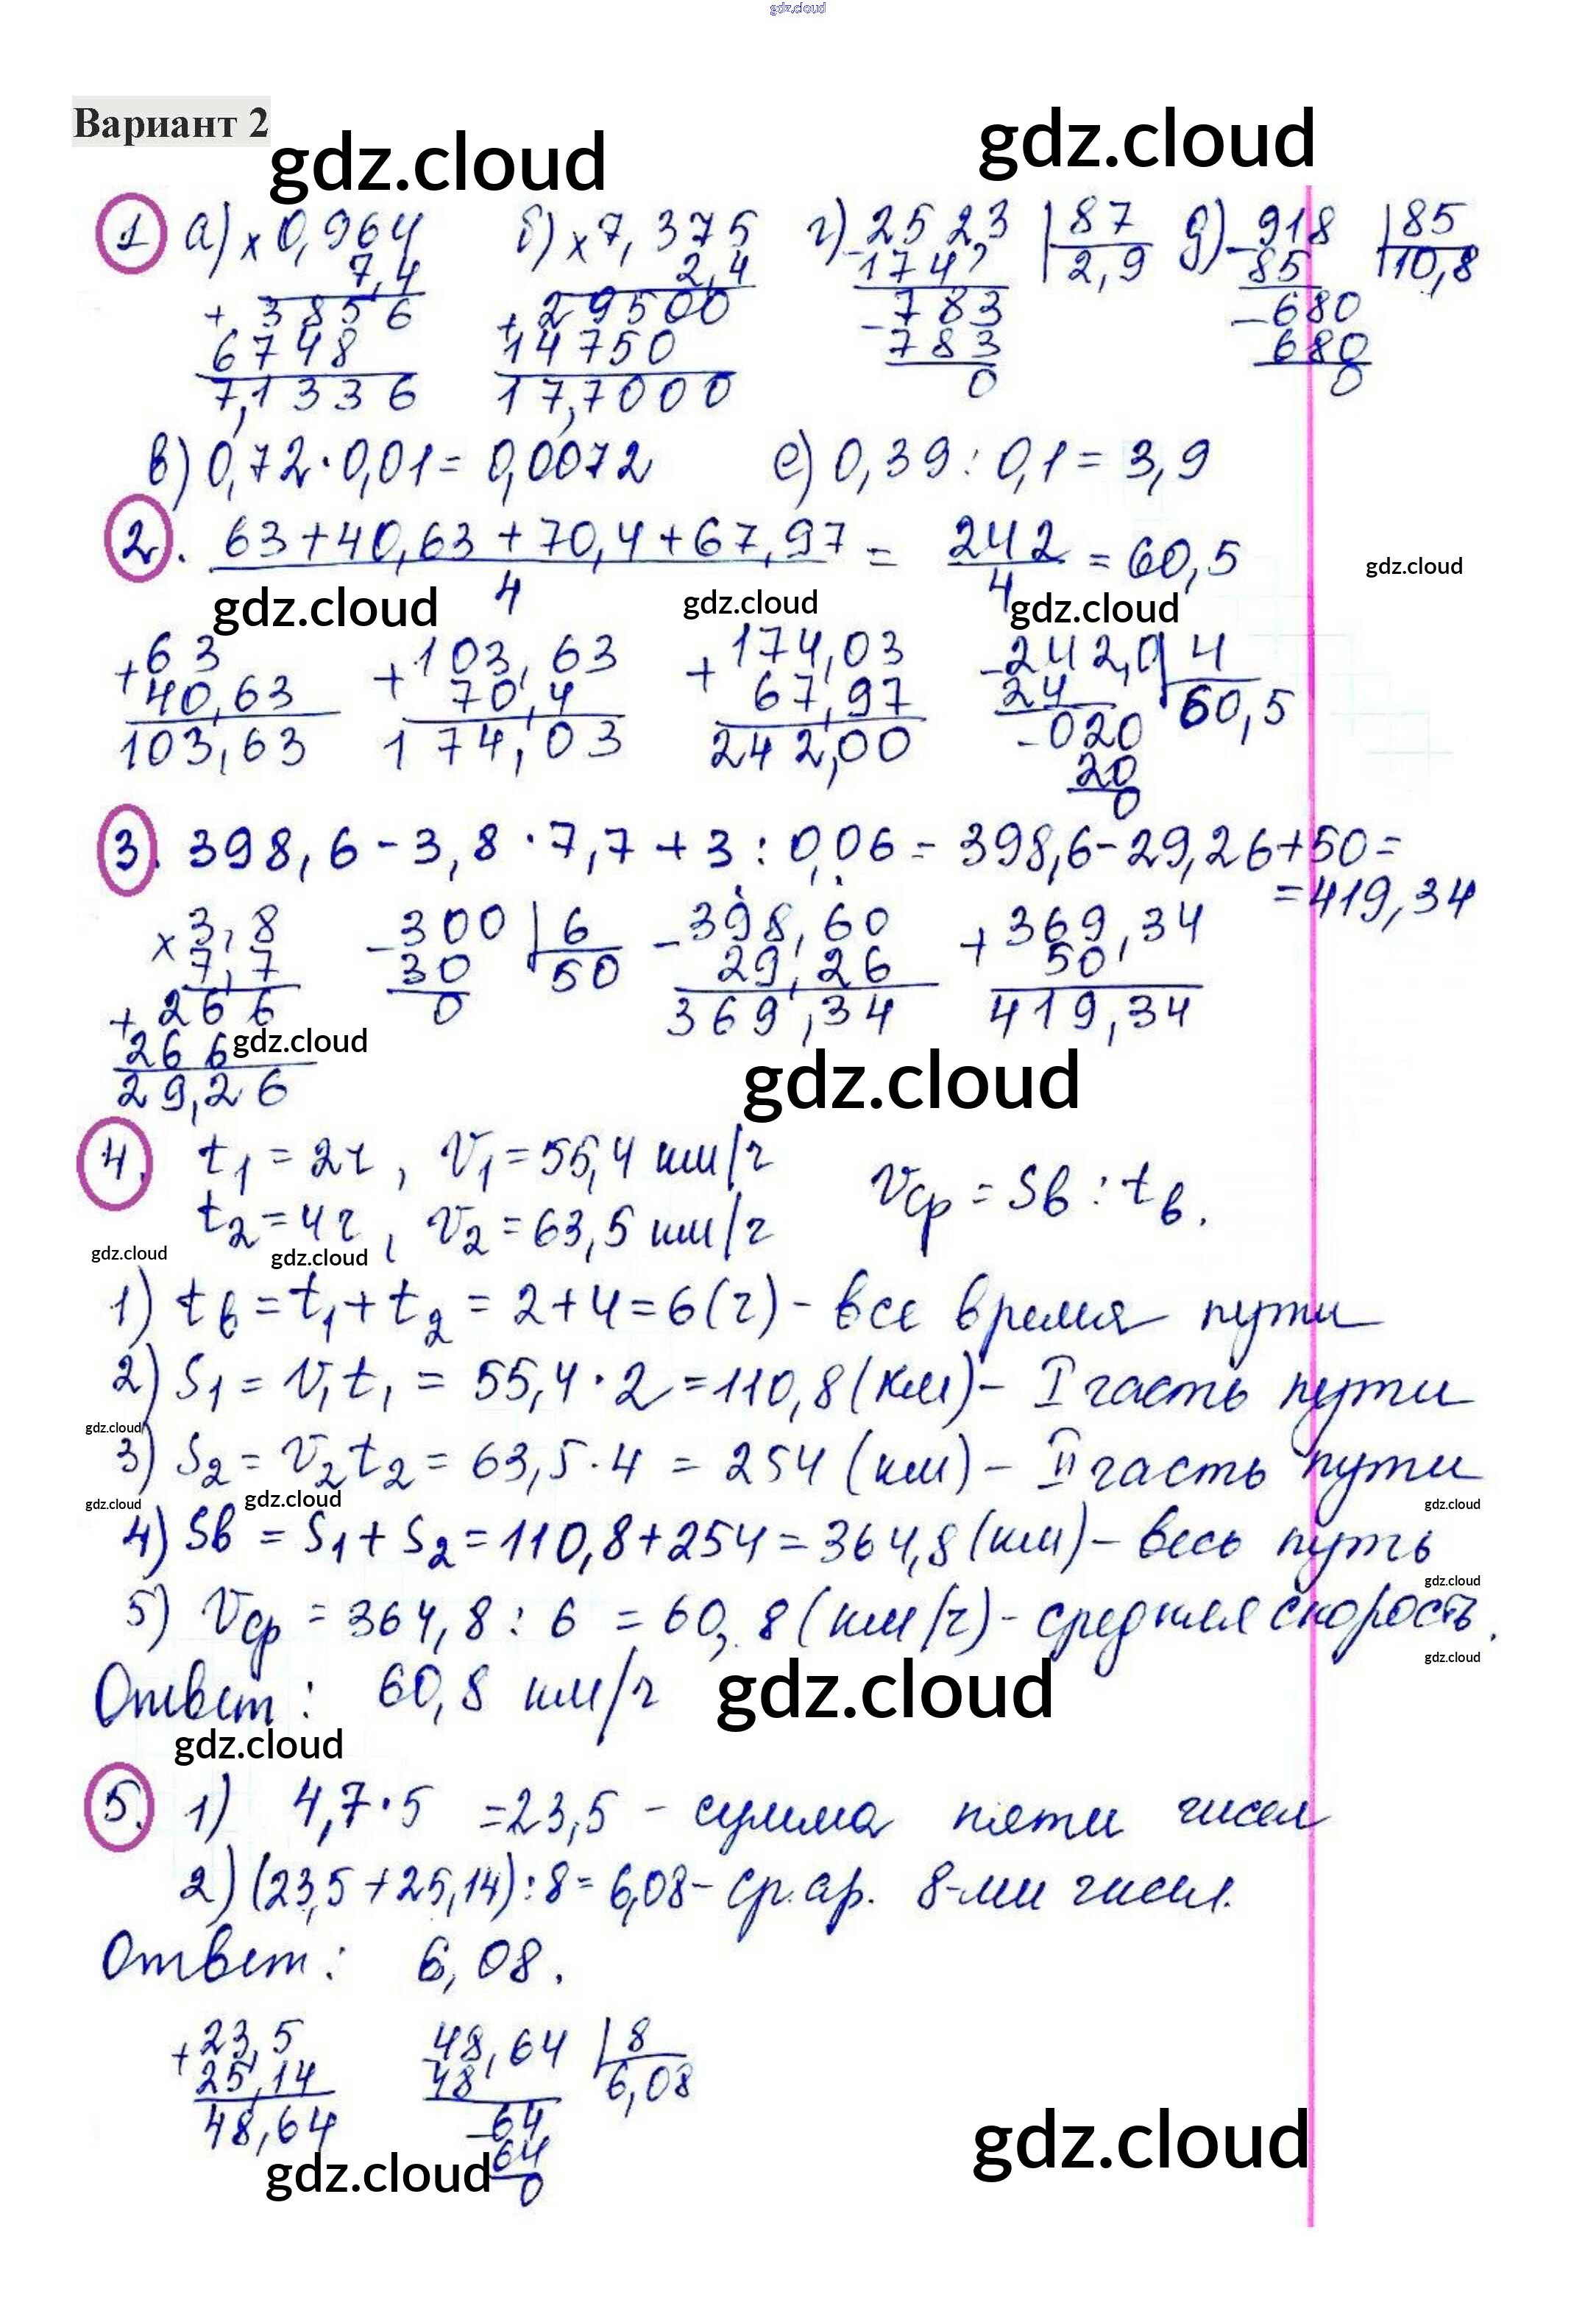 gdz.cloud
Вариант 2
gdz.cloud gdz.cloud
1 а) × 0,964 б) × 7,375 г) - 252,3 | 87 д) - 918 | 85
7,4 2,4 174 2,9 85 10,8
+ 3856 + 29500 - 783 - 680
6748 14750 783 680
7,1336 17,7000 0 0
в) 0,72 · 0,01 = 0,0072 е) 0,39 : 0,1 = 3,9
2. 63 + 40,63 + 70,4 + 67,97 / 4 = 242 / 4 = 60,5
gdz.cloud
gdz.cloud gdz.cloud gdz.cloud
+ 63 + 103,63 + 174,03 - 242,0 | 4
40,63 70,4 67,97 24 60,5
103,63 174,03 242,00 - 020
20
0
3. 398,6 - 3,8 · 7,7 + 3 : 0,06 = 398,6 - 29,26 + 50 =
= 419,34
× 3,8 - 300 | 6 - 398,60 + 369,34
7,7 30 50 29,26 50
+ 266 0 369,34 419,34
266 gdz.cloud
29,26
gdz.cloud
4. t1 = 2ч, V1 = 55,4 км/ч Vср = Sв : tв.
t2 = 4ч, V2 = 63,5 км/ч
gdz.cloud gdz.cloud
1) tв = t1 + t2 = 2 + 4 = 6 (ч) - все время пути
2) S1 = V1t1 = 55,4 · 2 = 110,8 (км) - I часть пути
gdz.cloud
3) S2 = V2t2 = 63,5 · 4 = 254 (км) - II часть пути
gdz.cloud gdz.cloud gdz.cloud
4) Sв = S1 + S2 = 110,8 + 254 = 364,8 (км) - весь путь
gdz.cloud
5) Vср = 364,8 : 6 = 60,8 (км/ч) - средняя скорость.
gdz.cloud
Ответ: 60,8 км/ч gdz.cloud
gdz.cloud
5. 1) 4,7 · 5 = 23,5 - сумма пяти чисел
2) (23,5 + 25,14) : 8 = 6,08 - ср. ар. 8-ми чисел.
Ответ: 6,08.
+ 23,5 - 48,64 | 8
25,14 48 6,08
48,64 - 64
64
0
gdz.cloud gdz.cloud